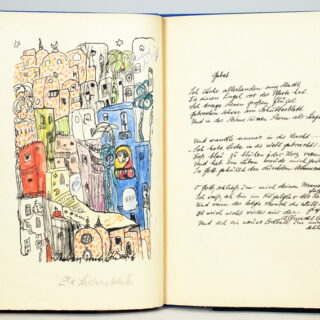 Gebet
Ich suche allerlanden eine Stadt,
Die einen Engel vor der Pforte hat.
Ich trage seinen großen Flügel
Gebrochen schwer am Schulterblatt
Und in der Stirne seinen Stern als Siegel
Und wandle immer in die Nacht...
Ich habe Liebe in die Welt gebracht
Daß blau zu blühen jedes Herz
Und hab ein Leben müde mich
In Gott gehüllt den dunklen
O Gott, schließ um mich deinen
Ich weiß, ich bin im Kugelglas der
Und wenn der letzte Mensch die Welt
Du mich nicht wieder aus der
Und sich ein neuer Erdball um mich